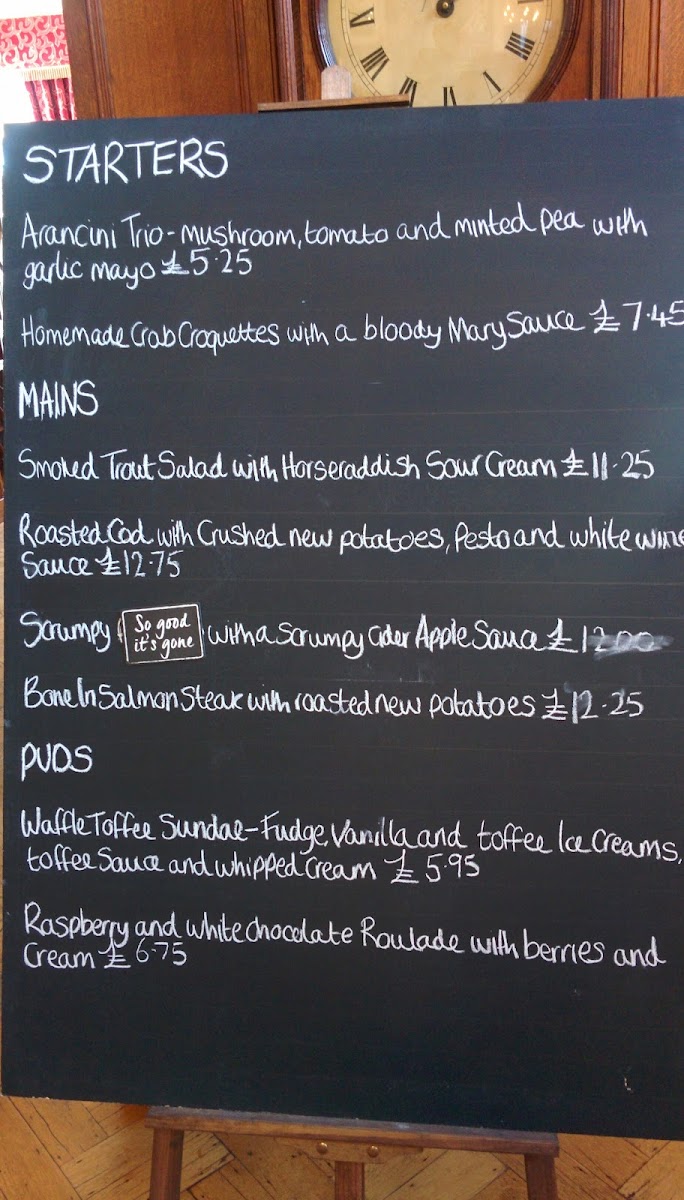 STARTERS
Arancini Trio - mushroom, tomato and minted pea with
garlic mayo £5.25
Homemade Crab Croquettes with a bloody Mary Sauce £7.45
MAINS
Smoked Trout Salad with Horseraddish Sour Cream £11.25
Roasted Cod with Crushed new potatoes, Pesto and white wine
Sauce £12.75
Scrumpy So good it's gone with a Scrumpy Cider Apple Sauce £12.00
Bone In Salmon Steak with roasted new potatoes £12.25
PUDS
Waffle Toffee Sundae - Fudge, Vanilla and toffee Ice Creams,
toffee Sauce and whipped Cream £5.95
Raspberry and white chocolate Roulade with berries and
Cream £6.75